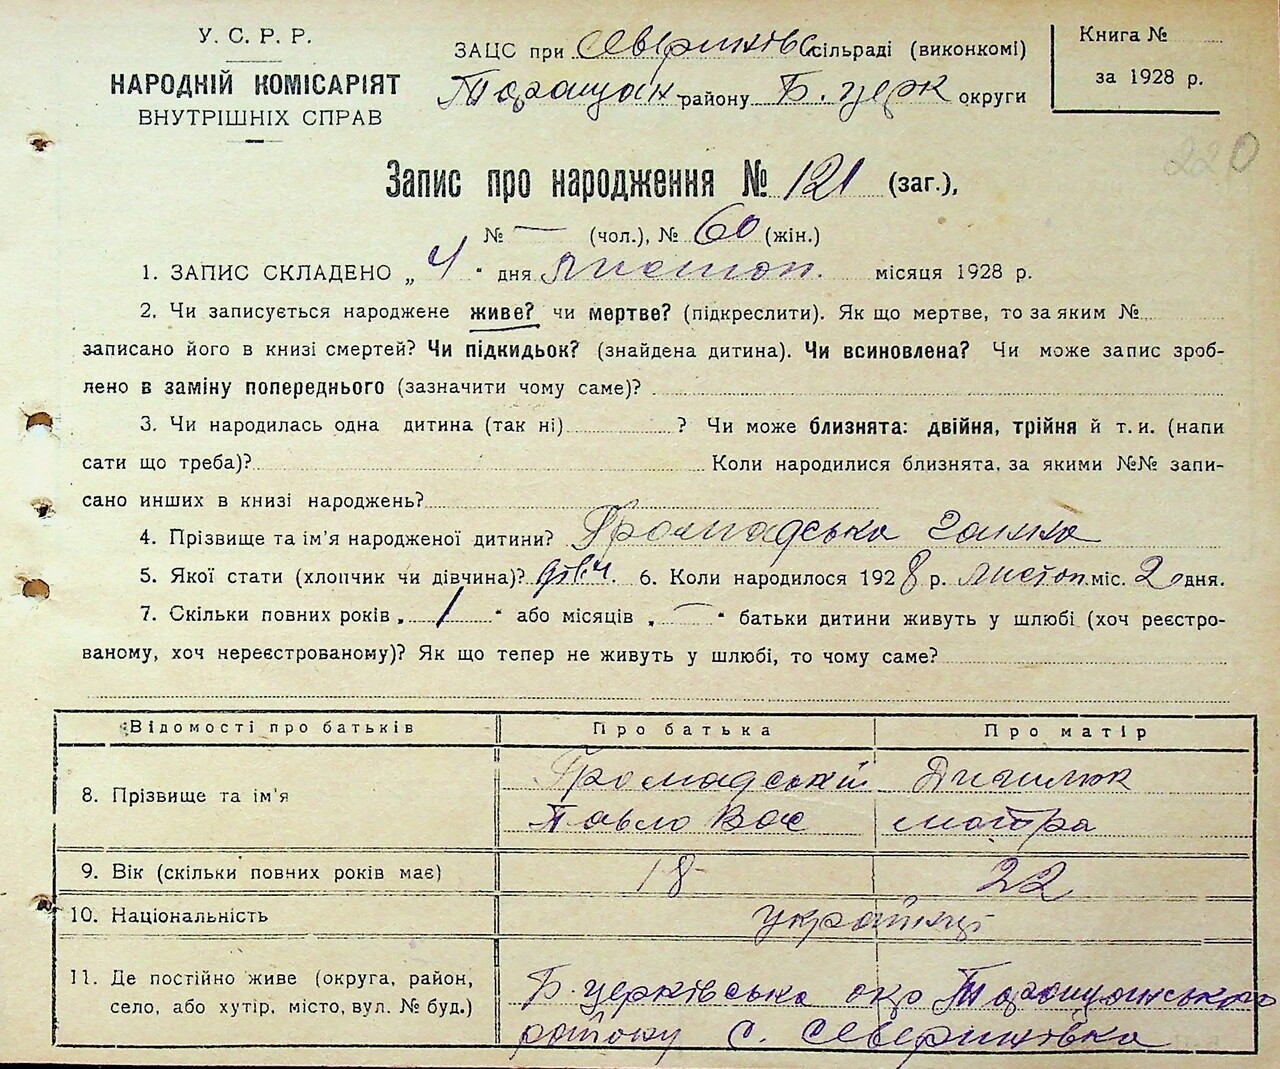 У. С. Р. Р.
НАРОДНІЙ КОМІСАРІЯТ
ВНУТРІШНІХ СПРАВ
ЗАЦС при Северинівс сільраді (виконкомі)
Таращан району Б. церк округи
Книга №
за 1928 р.
220
Запис про народження № 121 (заг.),
№ — (чол.), № 60 (жін.)
1. ЗАПИС СКЛАДЕНО „ 4 " дня листоп. місяця 1928 р.
2. Чи записується народжене живе? чи мертве? (підкреслити). Як що мертве, то за яким №
записано його в книзі смертей? Чи підкидьок? (знайдена дитина). Чи всиновлена? Чи може запис зроб-
лено в заміну попереднього (зазначити чому саме)?
3. Чи народилась одна дитина (так ні) ? Чи може близнята: двійня, трійня й т. и. (напи
сати що треба)? Коли народилися близнята, за якими №№ запи-
сано инших в книзі народжень?
4. Прізвище та ім'я народженої дитини? Громадська Ганна
5. Якої стати (хлопчик чи дівчина)? дівч. 6. Коли народилося 1928 р. листоп. міс. 2 дня.
7. Скільки повних років „ 1 " або місяців „ — " батьки дитини живуть у шлюбі (хоч реєстро-
ваному, хоч нереєстрованому)? Як що тепер не живуть у шлюбі, то чому саме?
Відомості про батьків Про батька Про матір
8. Прізвище та ім'я
Громадській
Павло Вас Мотра
9. Вік (скільки повних років має) 18 22
10. Національність українці
11. Де постійно живе (округа, район,
село, або хутір, місто, вул. № буд.)
Б. церківська окр Таращанського
району С. Северинівка